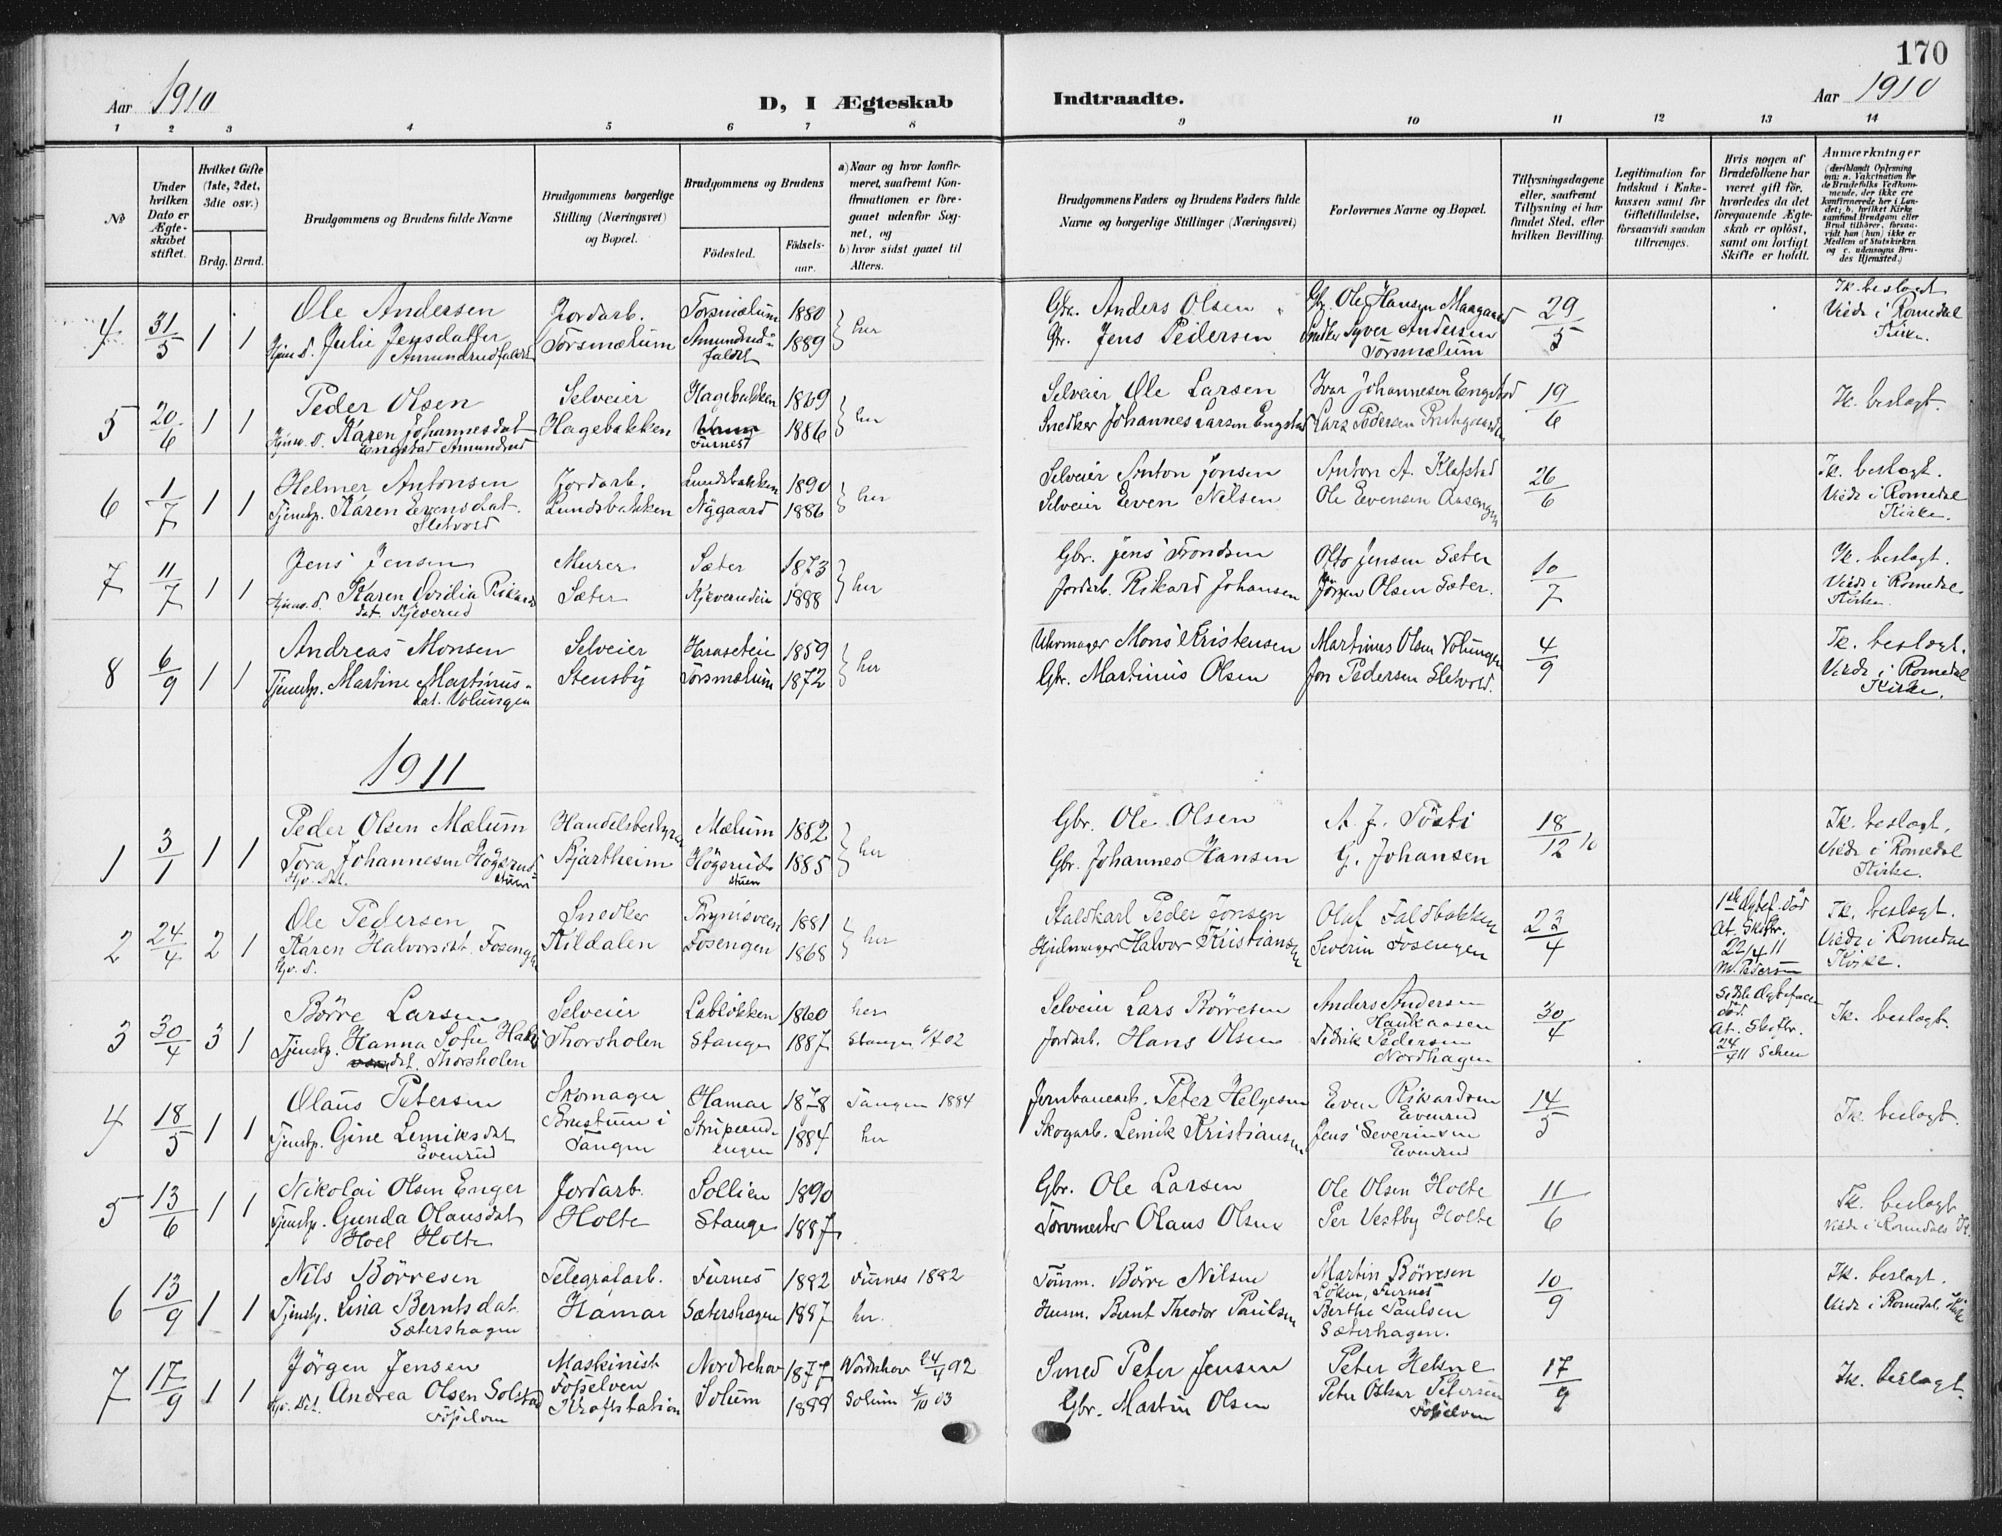 170
Aar 1910 D, I Ægteskab Indtraadte. Aar 1910
1 2 3 4 5 6 7 8 9 10 11 12 13 14
No
Under hvilken Dato er Ægteskabet stiftet.
Hvilket Gifte (1ste, 2det, 3die osv.)
Brdg. Brud.
Brudgommens og Brudens fulde Navne
Brudgommens borgerlige Stilling (Næringsvei) og Bopæl.
Brudgommens og Brudens
Födested. Födselsaar.
a) Naar og hvor konfirmeret, saafremt Konfirmationen er foregaaet udenför Sognet, og
b) hvor sidst gaaet til Alters.
Brudgommens Faders og Brudens Faders fulde Navne og borgerlige Stillinger (Næringsvei)
Forlovernes Navne og Bopæl.
Tillysningsdagene eller, saafremt Tillysning ei har fundet Sted, efter hvilken Bevilling.
Legitimation for Indskud i Enkekassen samt for Giftetilladelse, forsaavidt saadan tiltrænges.
Hvis nogen af Brudefolkene har været gift för, hvorledes da det foregaaende Ægteskab er oplöst, samt om lovligt Skifte er holdt.
Anmærkninger
4 31/5 1 1 Ole Andersen Jordarb. Torsmælum 1880 her Gbr. Anders Olsen Gbr. Ole Hansen Maagaard 29/5 Ik. beslægt
Hjem. D. Julie Jensdatter Amundrudfaldet Torsmælum Amundrudfaldet 1889 Gbr. Jens Pedersen Snedker Syver Andersen Torsmælum Viede i Romedal Kirke.
5 20/6 1 1 Peder Olsen Selveier Hagebakken 1869 her Selveier Ole Larsen Ivar Johannesen Engstad 19/6 Ik. beslægt.
Hjem. D. Karen Johannesdat. Engstad Amundrud Hagebakken Furnes 1886 Snedker Johannes Larsen Engstad Lars Pedersen
6 1/7 1 1 Helmer Antonsen Jordarb. Lundsbakken 1890 her Selveier Anton Jonsen Anton A. Klafstad 26/6 Ik. beslægt.
Tjenstp. Karen Evensdat. Sletvold Lundsbakken Nygaard 1886 Selveier Even Nilsen Ole Evensen Aasengen Viede i Romedal Kirke.
7 11/7 1 1 Jens Jensen Murer Sæter 1873 her Gbr. Jens Trondsen Otto Jensen Sæter 10/7 Ik. beslægt.
Hjem. D. Karen Ovidia Rikardsdat. Kjeverud Sæter Kjeverudeie 1888 Jordarb. Rikard Johansen Jörgen Olsen Sæter. Viede i Romedal Kirke.
8 6/9 1 1 Andreas Monsen Selveier Haraseteie 1859 her Uhrmager Mons Kristensen Martinus Olsen Volungen 4/9 Ik. beslægt.
Tjenstp. Martine Martinusdat. Volungen Stensby Torsmælum 1872 Gbr. Martinus Olsen Jon Pedersen Sletvold. Viede i Romedal Kirke.
1911
1 3/1 1 1 Peder Olsen Mælum Handelsbestyrer Mælum 1882 her Gbr. Ole Olsen A. J. Tösti 18/12 10 Ik. beslægt.
Tora Johannesen Högsrudstuen Hjv. Dat. Bjartheim Högsrudstuen 1885 Gbr. Johannes Hansen G. Johansen Viede i Romedal Kirke.
2 24/4 2 1 Ole Pedersen Snedker Brynisveen 1881 her Staldkarl Peder Jonsen Olaf Faldbakken 23/4 1ste Ægtef. död At. Skiftr. 22/4 11 M. Pedersen Ik. beslægt.
Karen Halvorsdt. Fosengen Hjv. D. Kildalen Fosengen 1868 Hjulmager Halvor Kristiansen Severin Fosengen Viede i Romedal Kirke.
3 30/4 3 1 Börre Larsen Selveier Labløkken 1860 her Selveier Lars Börresen Anders Andersen Haukaasen 30/4 död. At. Skiftr. 24/4 11 Ik. beslægt.
Tjenstp. Hanna Sofie Hansdat. Thorsholen Thorsholen Stange 1887 Stange 02 Jordarb. Hans Olsen Fredrik Pedersen Nordhagen
4 18/5 1 1 Olaus Petersen Skomager Hamar 1878 Tangen 1894 Jernbanearb. Peter Helgesen Even Rikardsen Evenrud 14/5 Ik. beslægt.
Tjenstp. Gine Lemiksdat Evenrud Brustuen i Tangen Striperudengen 1884 her Skogarb. Lemik Kristiansen Jens Severinsen Evenrud
5 13/6 1 1 Nikolai Olsen Enger Jordarb. Sollien 1890 Gbr. Ole Larsen Ole Olsen Holte 11/6 Ik. beslægt
Tjenstp. Gunda Olausdat Hoel Holte Holte Stange 1887 Torvmester Olaus Olsen Per Vestby Holte Viede i Romedals K.
6 13/9 1 1 Nils Börresen Telegrafarb. Furnes 1882 Furnes 1882 Tömm. Börre Nilsen Martin Börresen Löken, Furnes 10/9 Ik. beslægt.
Tjenstp. Lina Berntsdat. Sætershagen Hamar Sætershagen 1887 her. Husm. Bernt Theodor Paulsen Berthe Paulsen Sæterhagen. Viede i Romedal. Kirke
7 17/9 1 1 Jörgen Jensen Maskinist Nordrehov 1877 Nordrehov 24/4 92 Smed Peter Jensen Peter Helsne 17/9 Ik. beslægt.
Hjv. Dat. Andrea Olsen Solstad Fosselven Fosselven Kraftstation Solum 1888 Solum 4/10 03 Gbr. Martin Olsen Peter Oskar Petersen Fosselven